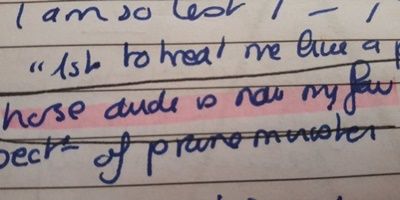 I am so lost I - I
"1st to treat me like a
horse dude is now my fav
pect of prime minister